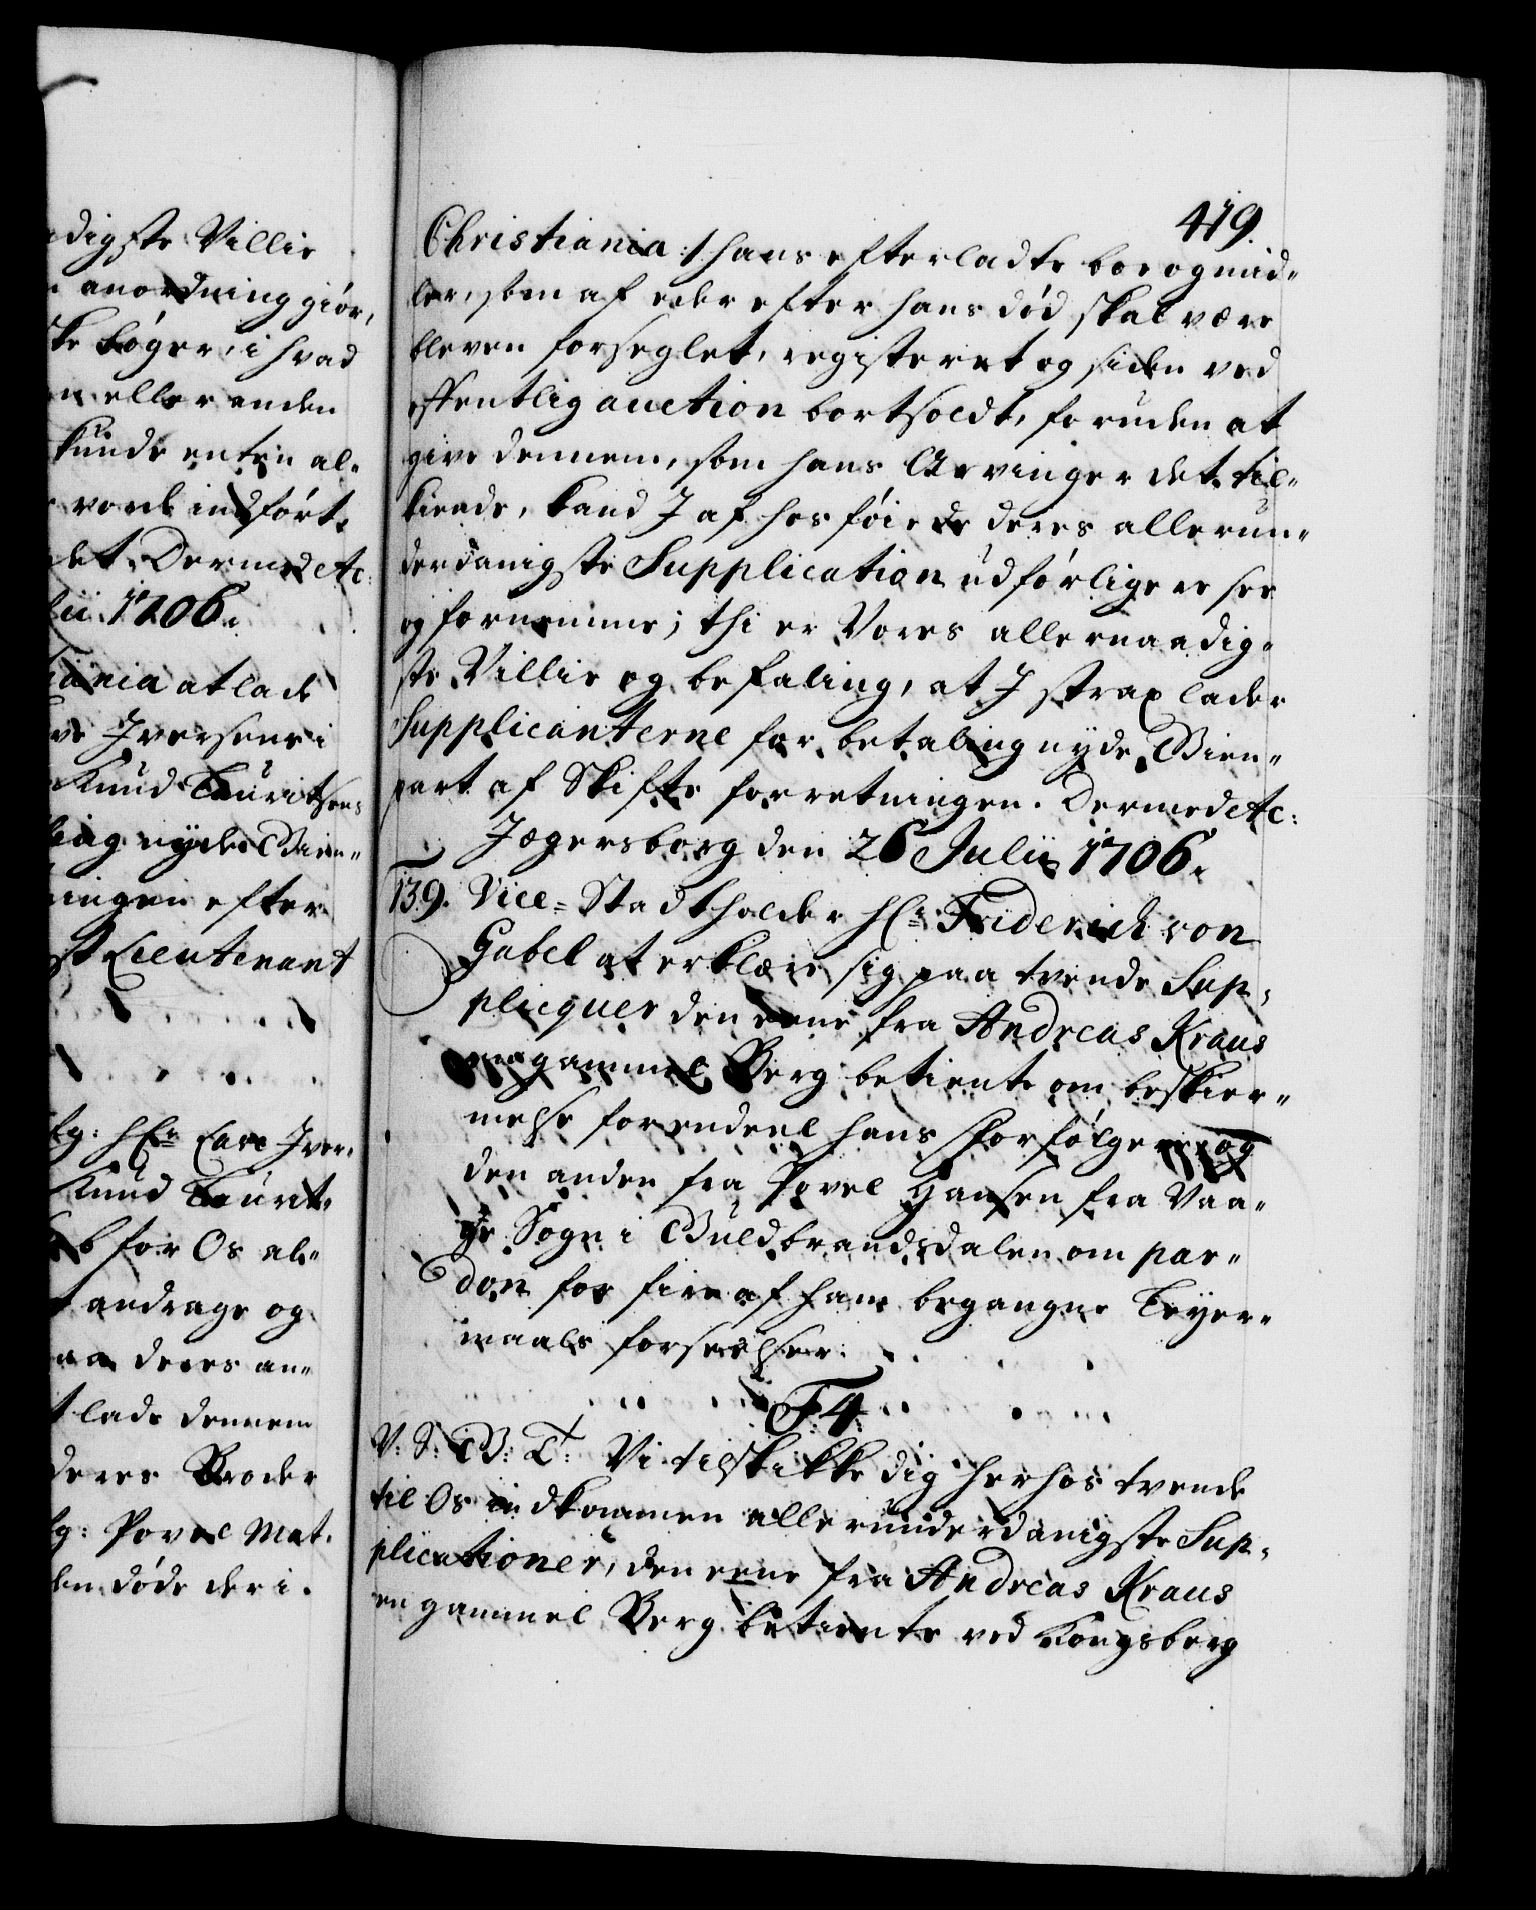 digste Villie
anordning giör,
ske bøger, i hvad
en eller anden
kunde enten al-
vorde indført.
det. Dermed &c:
lii 1706.
tiania at lade
Iversens i
Knud Lauritsens
ling nyde Gien-
ningen efter
st Lieutenant
Hr. Lare Iver-
Knud Laurit-
for Os al-
andrage og
paa deres an-
lade dennem
deres Broder
Povel Mat-
den døde der i
419.
Christiania :/ hans efterladte boe og mid-
ler, som af eder efter hans død skal være
bleven forseglet, registeret og siden ved
offentlig auction bortsoldt, foruden at
give dennem, som hans Arvinger det til-
kiende, kand I af hosføiede deres allerun-
derdanigste Supplication udførligere see
og fornemme; thi er Vores allernaadig-
ste Villie og befaling, at I strax lader
Supplicanterne for betaling nyde Gien-
part af Skifte forretningen. Dermed &c:
Jægersborg den 26 Julii 1706.
139. Vice-Stadtholder Hr. Friderich von
Gabel at erklære sig paa tvende Sup-
pliquer den eene fra Andreas Kraus
en gammel Berg betiente om beskier-
melse for endeel hans forfølgere, og
den anden fra Povel Hansen fra Vaa-
ge Sogn i Guldbrandsdalen om par-
don for fire af ham begangne Leyer-
maals forseelser.
F4
V: S: G: T: Vi tilskikke dig herhos tvende
til Os indkommen allerunderdanigste Sup-
plicationer, den eene fra Andreas Kraus
en gammel Berg betiente ved Kongsberg